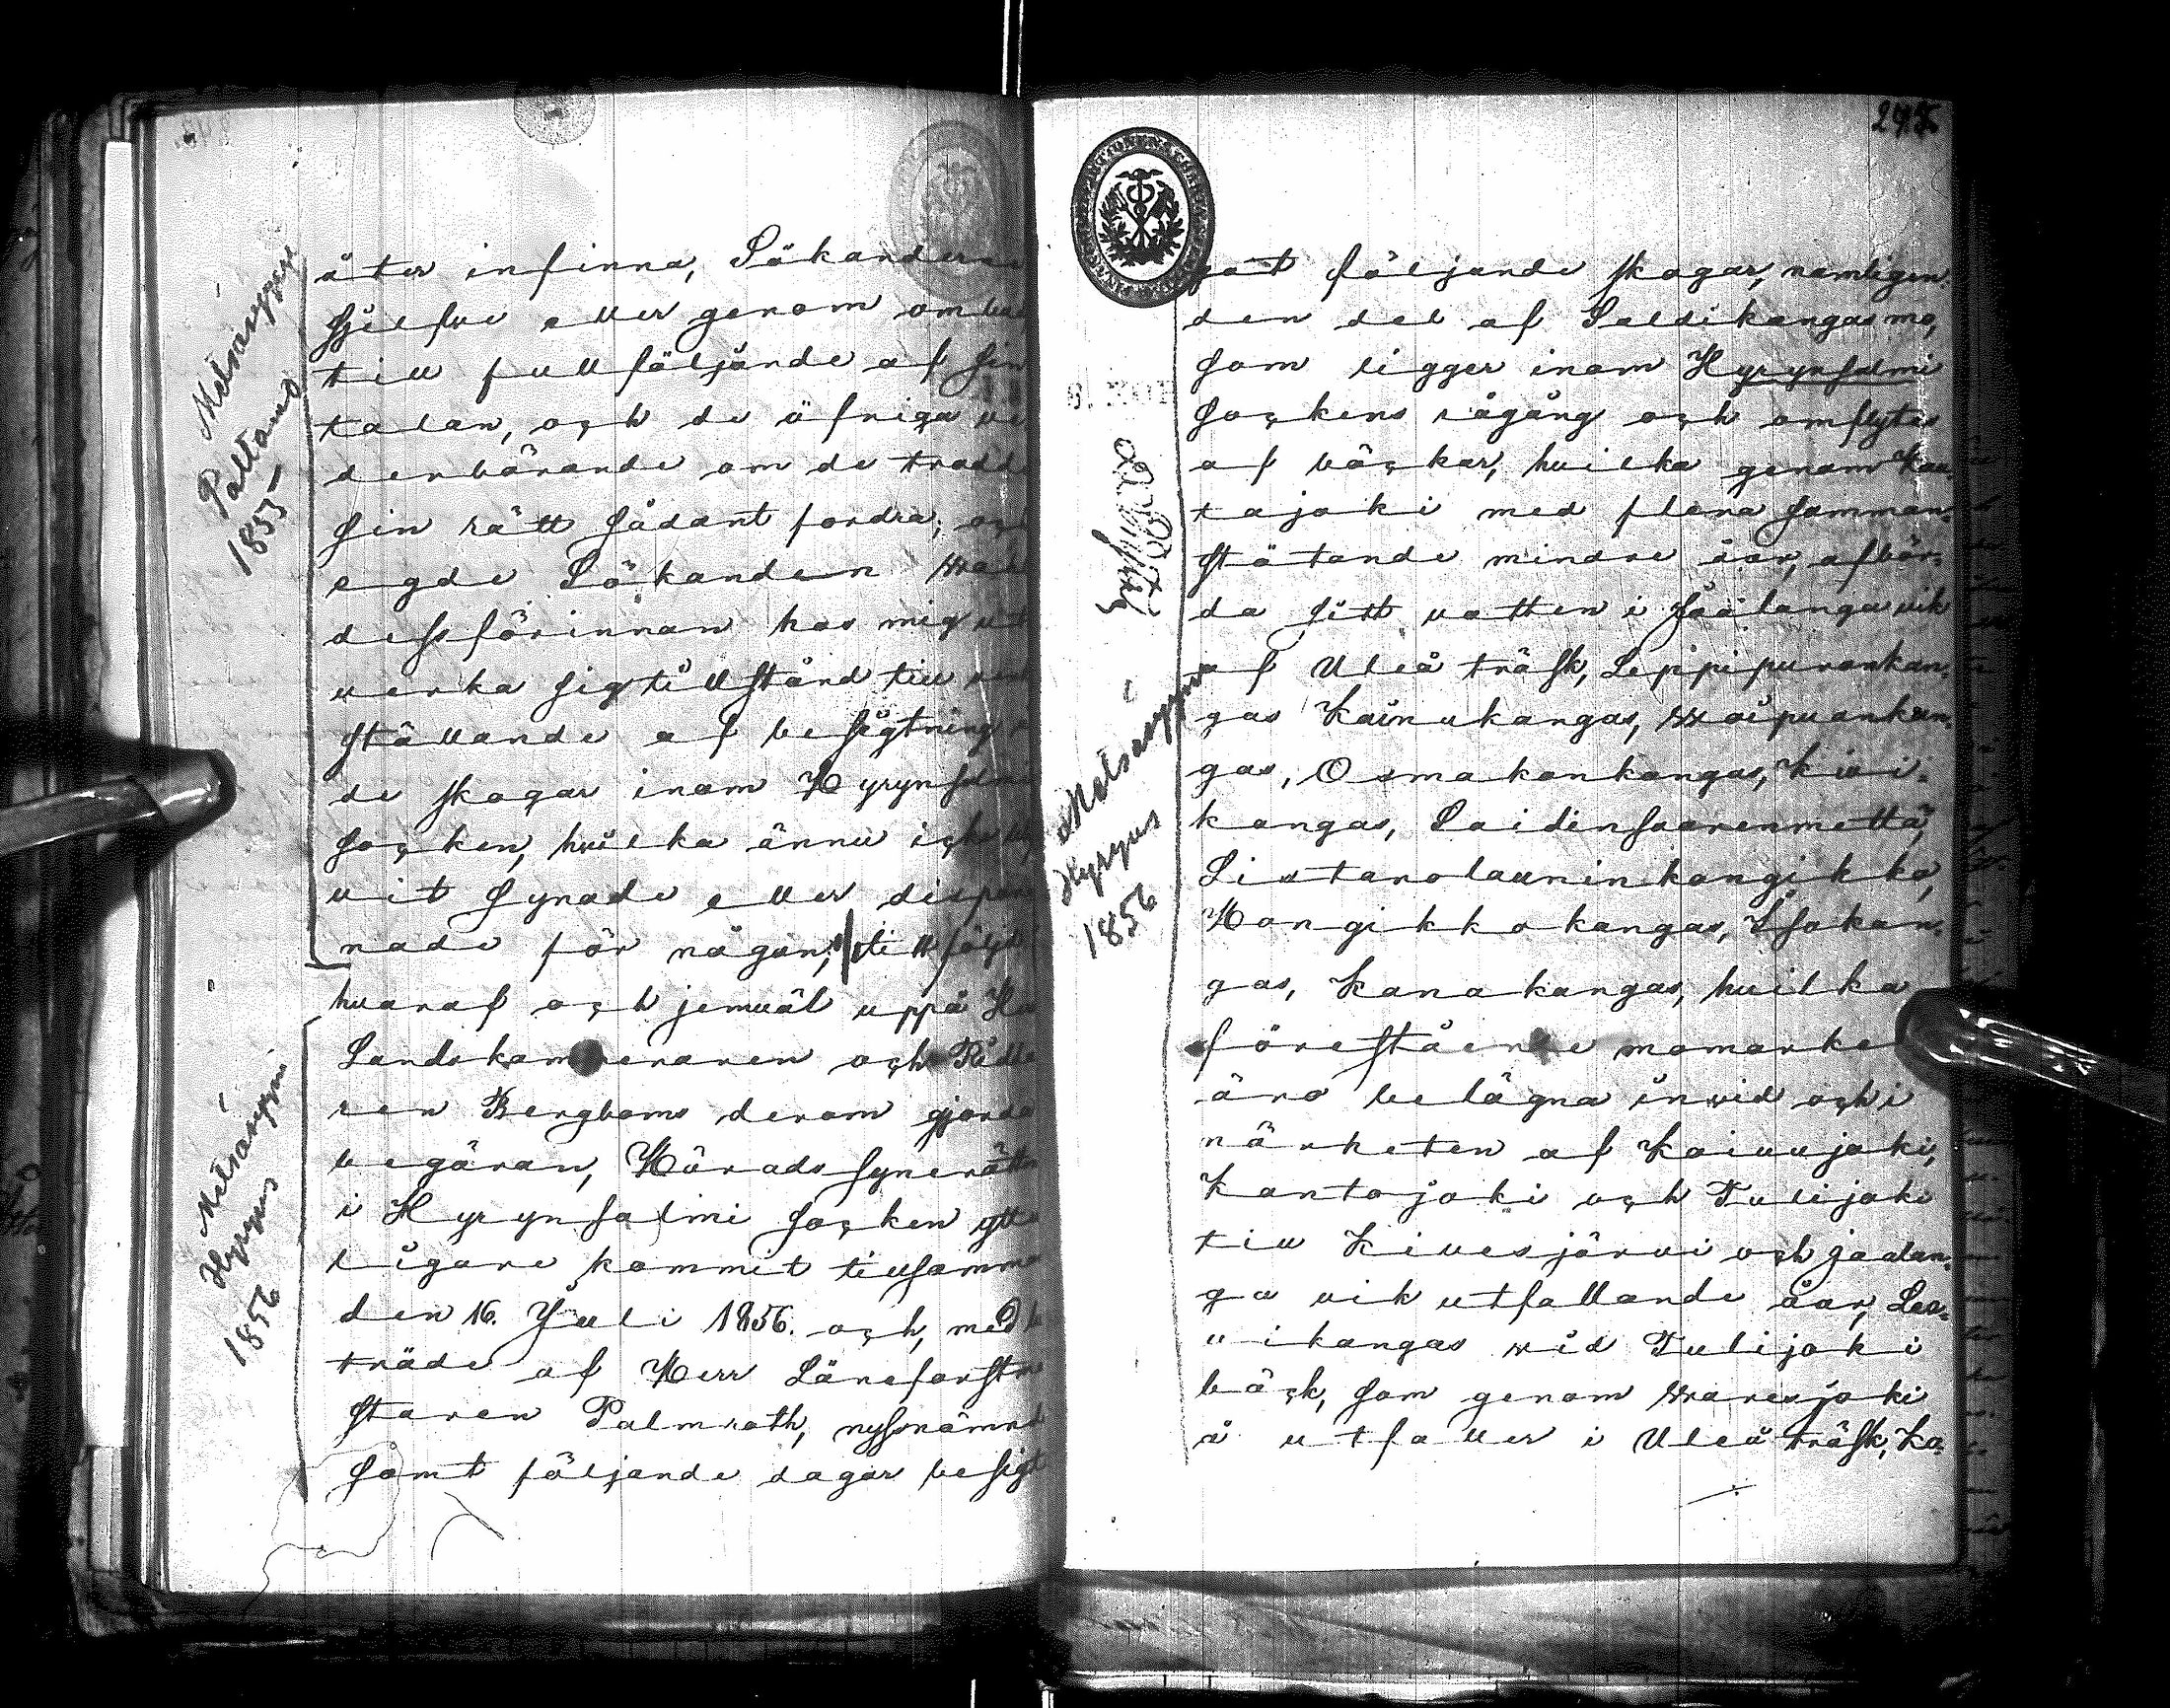 Metsäsyyni
Paltamo
1853
åter infinna, Sökanderne
sjelfve eller genom ombud
till fullföljande af sin
talan, och de öfriga ve
derbörande om de trodde
sin rätt sådant fordra; och
egde Sökanden
dessförinnan hos mig ut
verka sig tillstånd till verk
ställande af besigtning å
de skogar inom Hyrynsalmi
socken, hvilka ännu icke bli
vit synade eller dispo
nade för någon; till följd
hvaraf och jemväl uppå Herr
Landskamreraren och Ridda
ren Bergboms derom gjorda
begäran, Härads synerätten
i Hyrynsalmi socken ytter
ligare kommit tillsamman
den 16. Juli 1856. och, med bi
träde af Herr Länsforstmä
staren Palmroth, nyssnämnde
samt följande dagar besigt
Metsäsyyni
Hyryns
1856
247
gat följande skogar, nemligen:
den del af Saldikangas mo,
som ligger inom Hyrynsalmi
sockens rågång och omflytes
af bäckar, hvilka genom Kau¬
tajoki med flera samman¬
stötande mindre åar, afbör¬
da sitt vatten i Jaalanga vik
af Uleå träsk, Leppipurankan¬
gas Kainukangas, Waipuankan¬
gas, Osmakankangas, Kivi¬
kangas, Saidinsaarenmettä,
Listanolauninkangikko,
Hongikkokangas, Isokan¬
gas, Kanakangas, hvilka
förestående momarker
äro belägna invid och i
närheten af Kaivujoki,
Kantojoki och Tulijoki
till Kivesjärvi och Jaalan¬
ga vik utfallande åar, Lea¬
vikangas vid Tulijoki
bäck, som genom Waresjoki
å utfaller i Uleå träsk, Ko¬
Metsäsyyni
Hyryns
1856